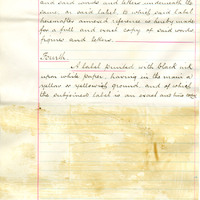 and said words and letters underneath the
name, on said label, to which said label
hereunto annexed reference is hereby made
for a full and exact copy of said words
figures and letters.
Fourth.
A label printed with black ink
upon white paper, having in the main a
yellow or yellowish ground, and of which
the subjoined label is an exact and true copy